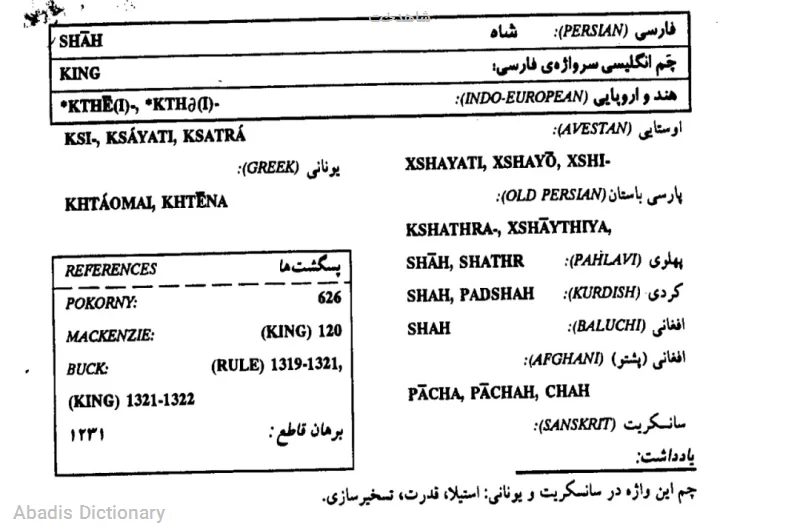 شاهدخت
فارسی (PERSIAN): شاه SHĀH
چَم انگلیسی سرواژه‌ی فارسی: KING
هند و اروپایی (INDO-EUROPEAN): *KTHĒ(I)-, *KTHə(I)-
اوستایی (AVESTAN):
XSHAYATI, XSHAYŌ, XSHI-
پارسی باستان (OLD PERSIAN):
KSHATHRA-, XSHĀYTHIYA,
پهلوی (PAHLAVI): SHĀH, SHATHR
کردی (KURDISH): SHAH, PADSHAH
افغانی (BALUCHI): SHAH
افغانی (پشتو) (AFGHANI):
PĀCHA, PĀCHAH, CHAH
سانسکریت (SANSKRIT):
KSI-, KSÁYATI, KSATRÁ
یونانی (GREEK):
KHTÁOMAI, KHTĒNA
REFERENCES پسگشت‌ها
POKORNY: 626
MACKENZIE: (KING) 120
BUCK: (RULE) 1319-1321,
(KING) 1321-1322
برهان قاطع: ۱۲۳۱
یادداشت:
چم این واژه در سانسکریت و یونانی: استیلا، قدرت، تسخیرسازی.
Abadis Dictionary